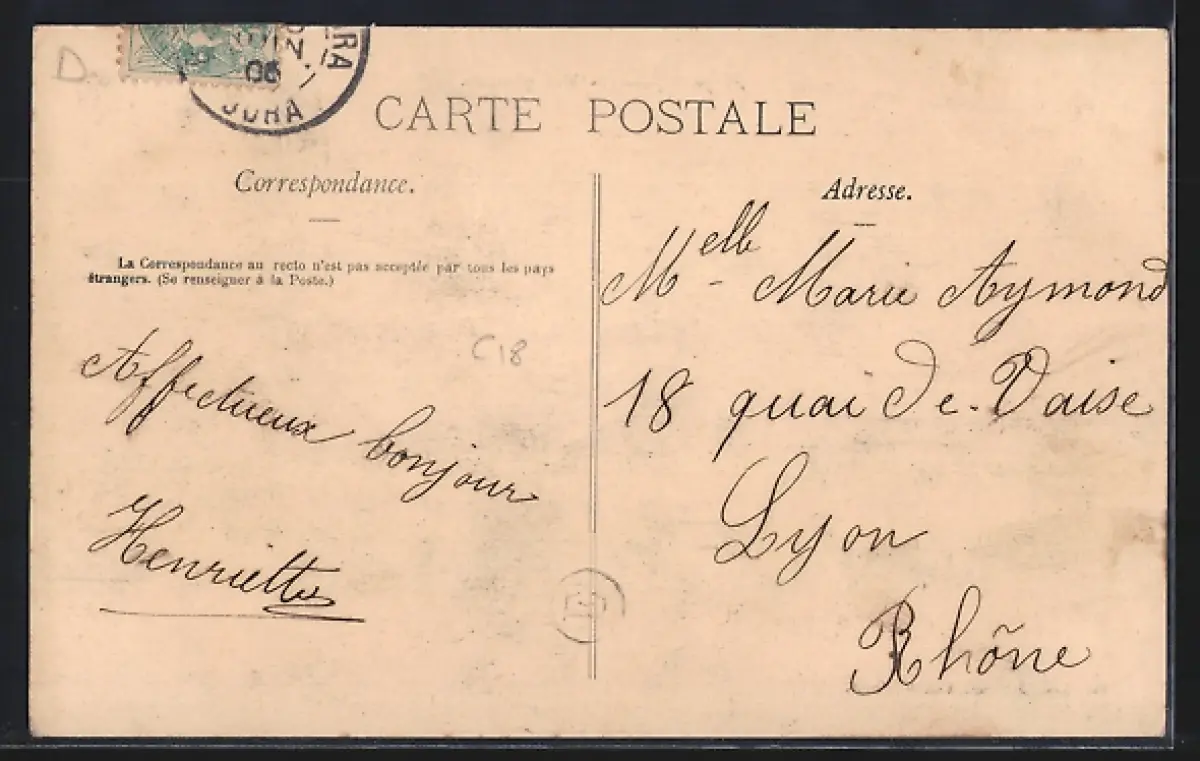 D.
06
JURA
CARTE POSTALE
Correspondance.
La Correspondance au recto n'est pas acceptée par tous les pays
étrangers. (Se renseigner à la Poste.)
C18
Affectueux bonjour
Henriette
Adresse.
Melle Marie Aymond
18 quai de Vaise
Lyon
Rhône